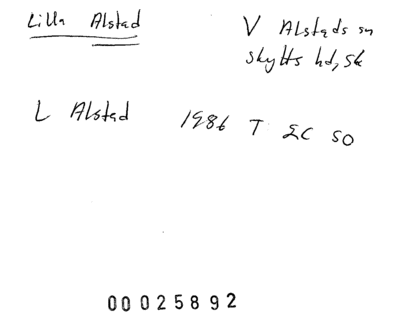 Lilla Alstad
V Alstads sn
Skytts hd, Sk
L Alstad 1986 T EC SO
00025892